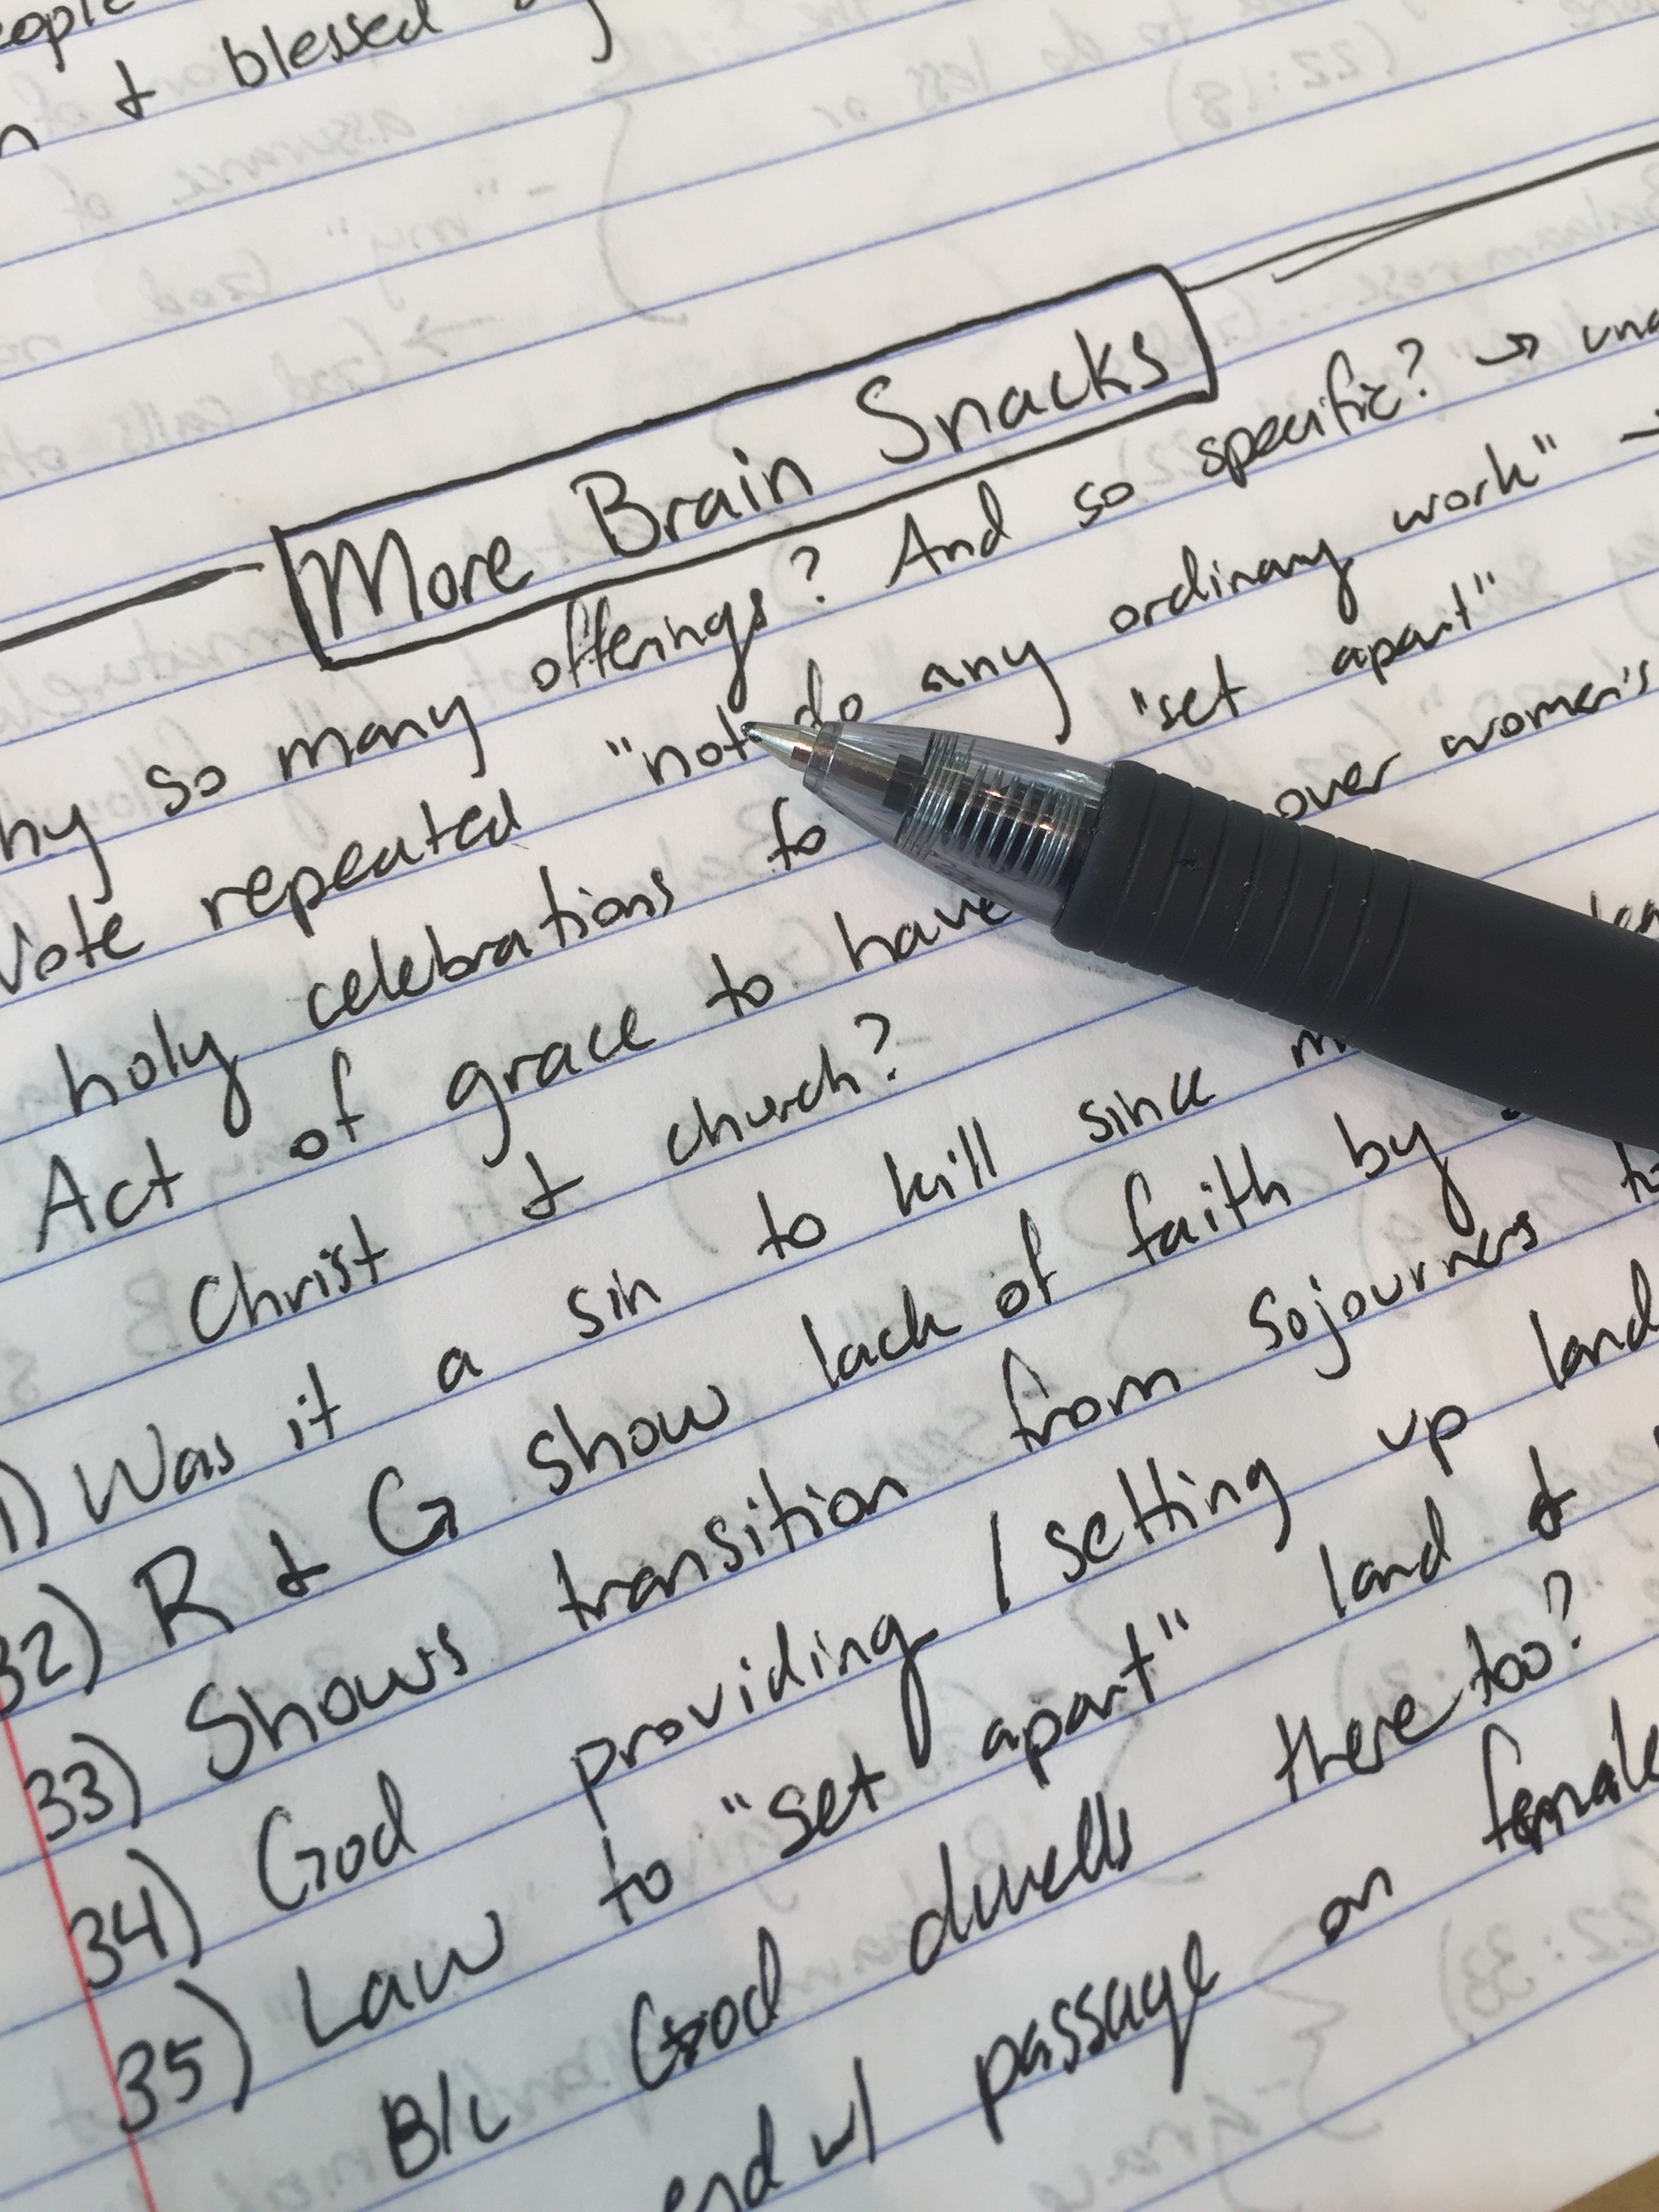 & blessed
More Brain Snacks
so many offerings? And so specific? →
repeated "not do any ordinary work" →
holy celebrations to "set apart"
Act of grace to have over women's
Christ & church?
1) Was it a sin to kill since
32) R & G show lack of faith by
33) Shows transition from sojourners to
34) God providing / setting up land
35) Law to "set apart" land &
B/c God dwells there too?
end w/ passage on female